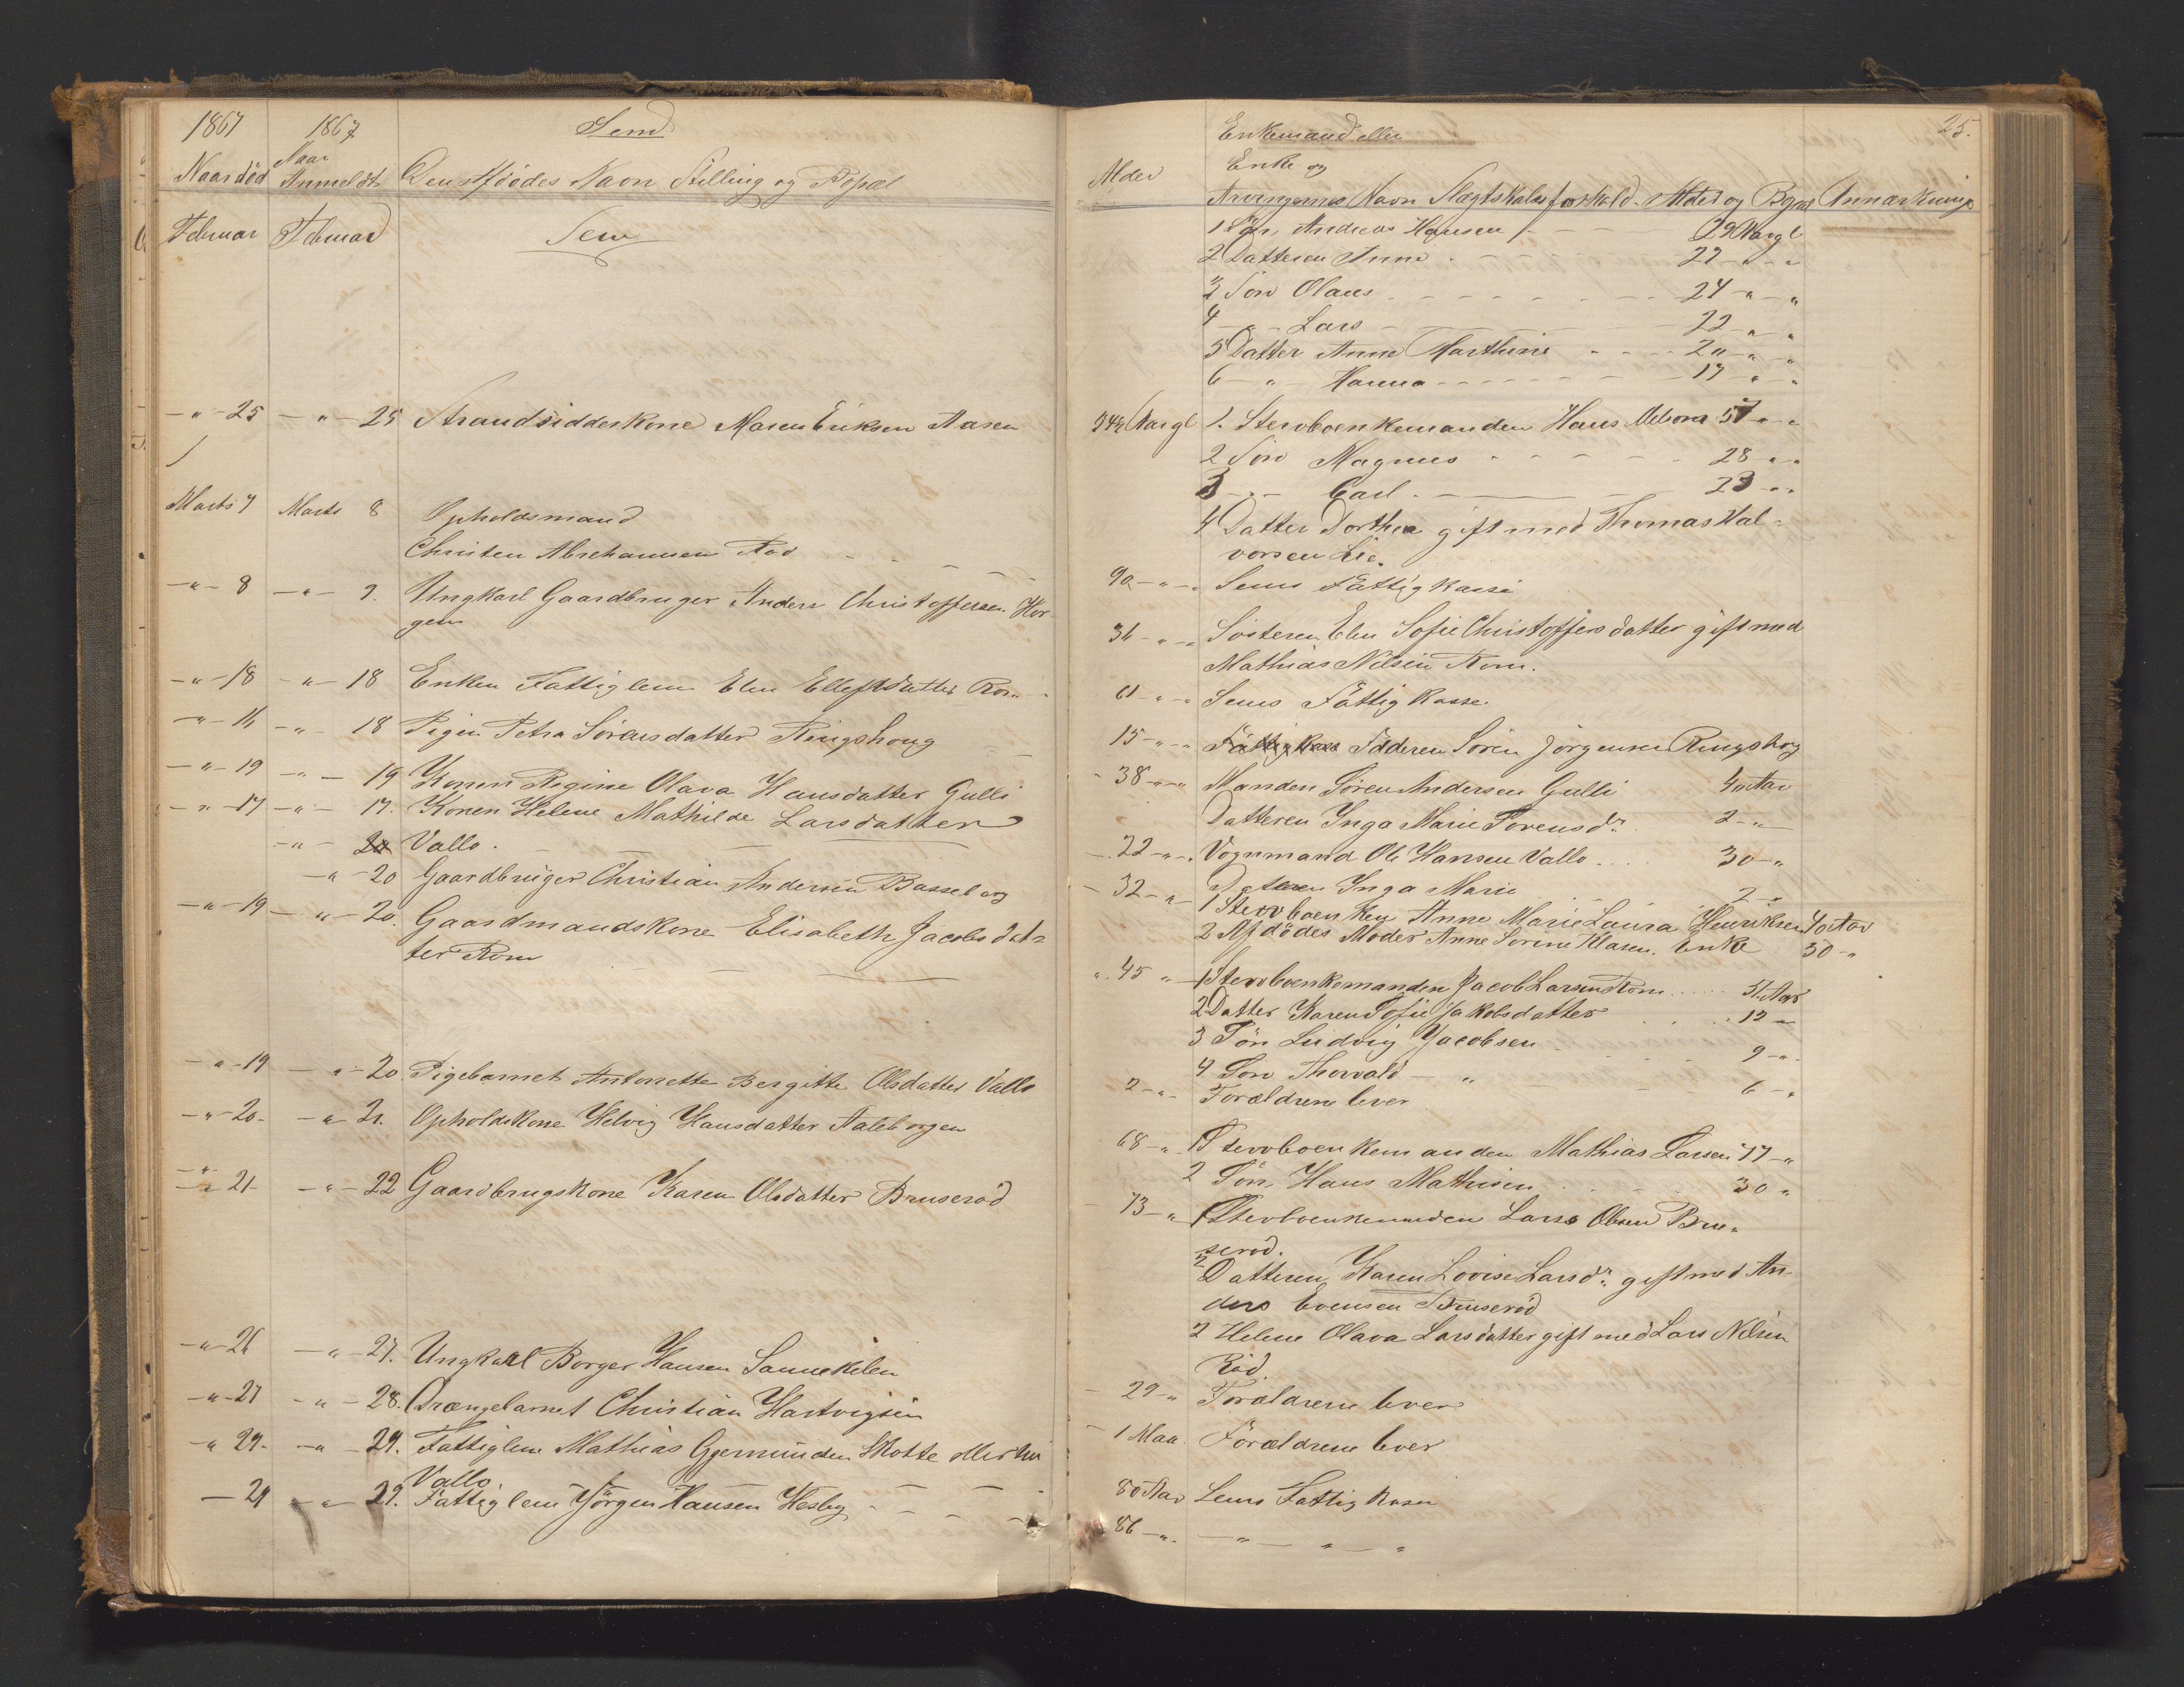 1867 1867 Sem
Naar død Naar Anmeldt Den Afdødes Navn Stilling og Bopæl
Februar Februar Sem
-"- 25 -"- 25 Strandsidderkone Maren Eriksen Aasen
Marts 7 Marts 8 Opholdsmand
Christen Abrahamsen Rød
-"- 8 -"- 9. Ungkarl Gaardbruger Anders Christoffersen Hor-
gen
-"- 18 -"- 18 Enken Fattiglem Elen Ellefsdatter Rom
-"- 16 -"- 18 Pigen Petra Sørensdatter Ringshoug
-"- 19 -"- 19 Konen Regine Olava Hansdatter Gulli
-"- 17 -"- 17. Konen Helene Mathilde Larsdatter
-"- 20 Vallø.
-"- 20 Gaardbruger Christian Andersen Basseberg
-"- 19 -"- 20. Gaardmandskone Elisabeth Jacobsdat-
ter Rom
-"- 19 -"- 20. Pigebarnet Antonette Bergitte Olsdatter Vallø
-"- 20. -"- 21. Opholdskone Helvig Hansdatter Aaleborgen
-"- 21 -"- 22 Gaardbrugskone Karen Olsdatter Bruserød
-"- 26 -"- 27. Ungkarl Borger Hansen
-"- 27 -"- 28. Drængebarnet Christian Hartvigsen
-"- 29. -"- 29. Fattiglem Mathias Gjermundsen Skotte
Vallø
- 29 -"- 29. Fattiglem Jørgen Hansen Hesby
25.
Alder Enkemand eller
Enke og
Arvingernes Navn Slægtskabsforhold. Alder og Bopæl Anmærkning
1 Søn Andreas Hansen 29 Aargl
2 Datteren Anne 27 -"-
3 Søn Olaus 24 -"-
4 -"- Lars 22 -"-
5 Datter Anne Marthine 20 -"-
6 -"- Hanna 17 -"-
Aargl 1. Stervboenkemanden Hans 57 -"-
2 Søn Magnus 28 -"-
3 -"- Carl 23 -"-
4 Datter Dorthea gift med Thomas Hal-
vorsen Lie.
90 -"- Sems Fattigkasse
36 -"- Søsteren Elen Sofie Christoffersdatter gift med
Mathias Nilsen Rom.
61 -"- Sems Fattigkasse.
15 -"- Fattigkasse Faderen Søren Jørgensen Ringshog
38 -"- Manden Søren Andersen Gulli 40 Aar
Datteren Inga Marie Sørensdr. 2 -"-
22 -"- Vognmand Ole Hansen Vallø 30 -"-
Datteren Inga Marie 2 -"-
32 -"- 1 Stervboenken Anne Marie Laura Henriksen 40 Aar
2 Afdødes Moder Anne Sorine Klasen. Enke 50 -"-
" 45 " 1 Stervboenkemanden Jacob Larsen Rom 51 Aar
2 Datter Karen Sofie Jakobsdatter 12 -"-
3 Søn Ludvig Jacobsen 9 -"-
4 Søn Thorvald -"- 6 -"-
2 -"- Forældrene lever
68 -"- 1 Stervboenkemanden Mathias Larsen 77 -"-
2 Søn Hans Mathisen 30 "
73 -"- 1 Stervboenkemanden Lars Olsen Bru-
serød.
2 Datteren Karen Lovise Larsdr. gift med An-
ders Evensen Bruserød
2 Helene Olava Larsdatter gift med Lars Nilsen
Rød.
- 29 -"- Forældrene lever
- 1 Maa. Forældrene lever
80 Aar Sems Fattigkasse
86 -"- -"- " - "